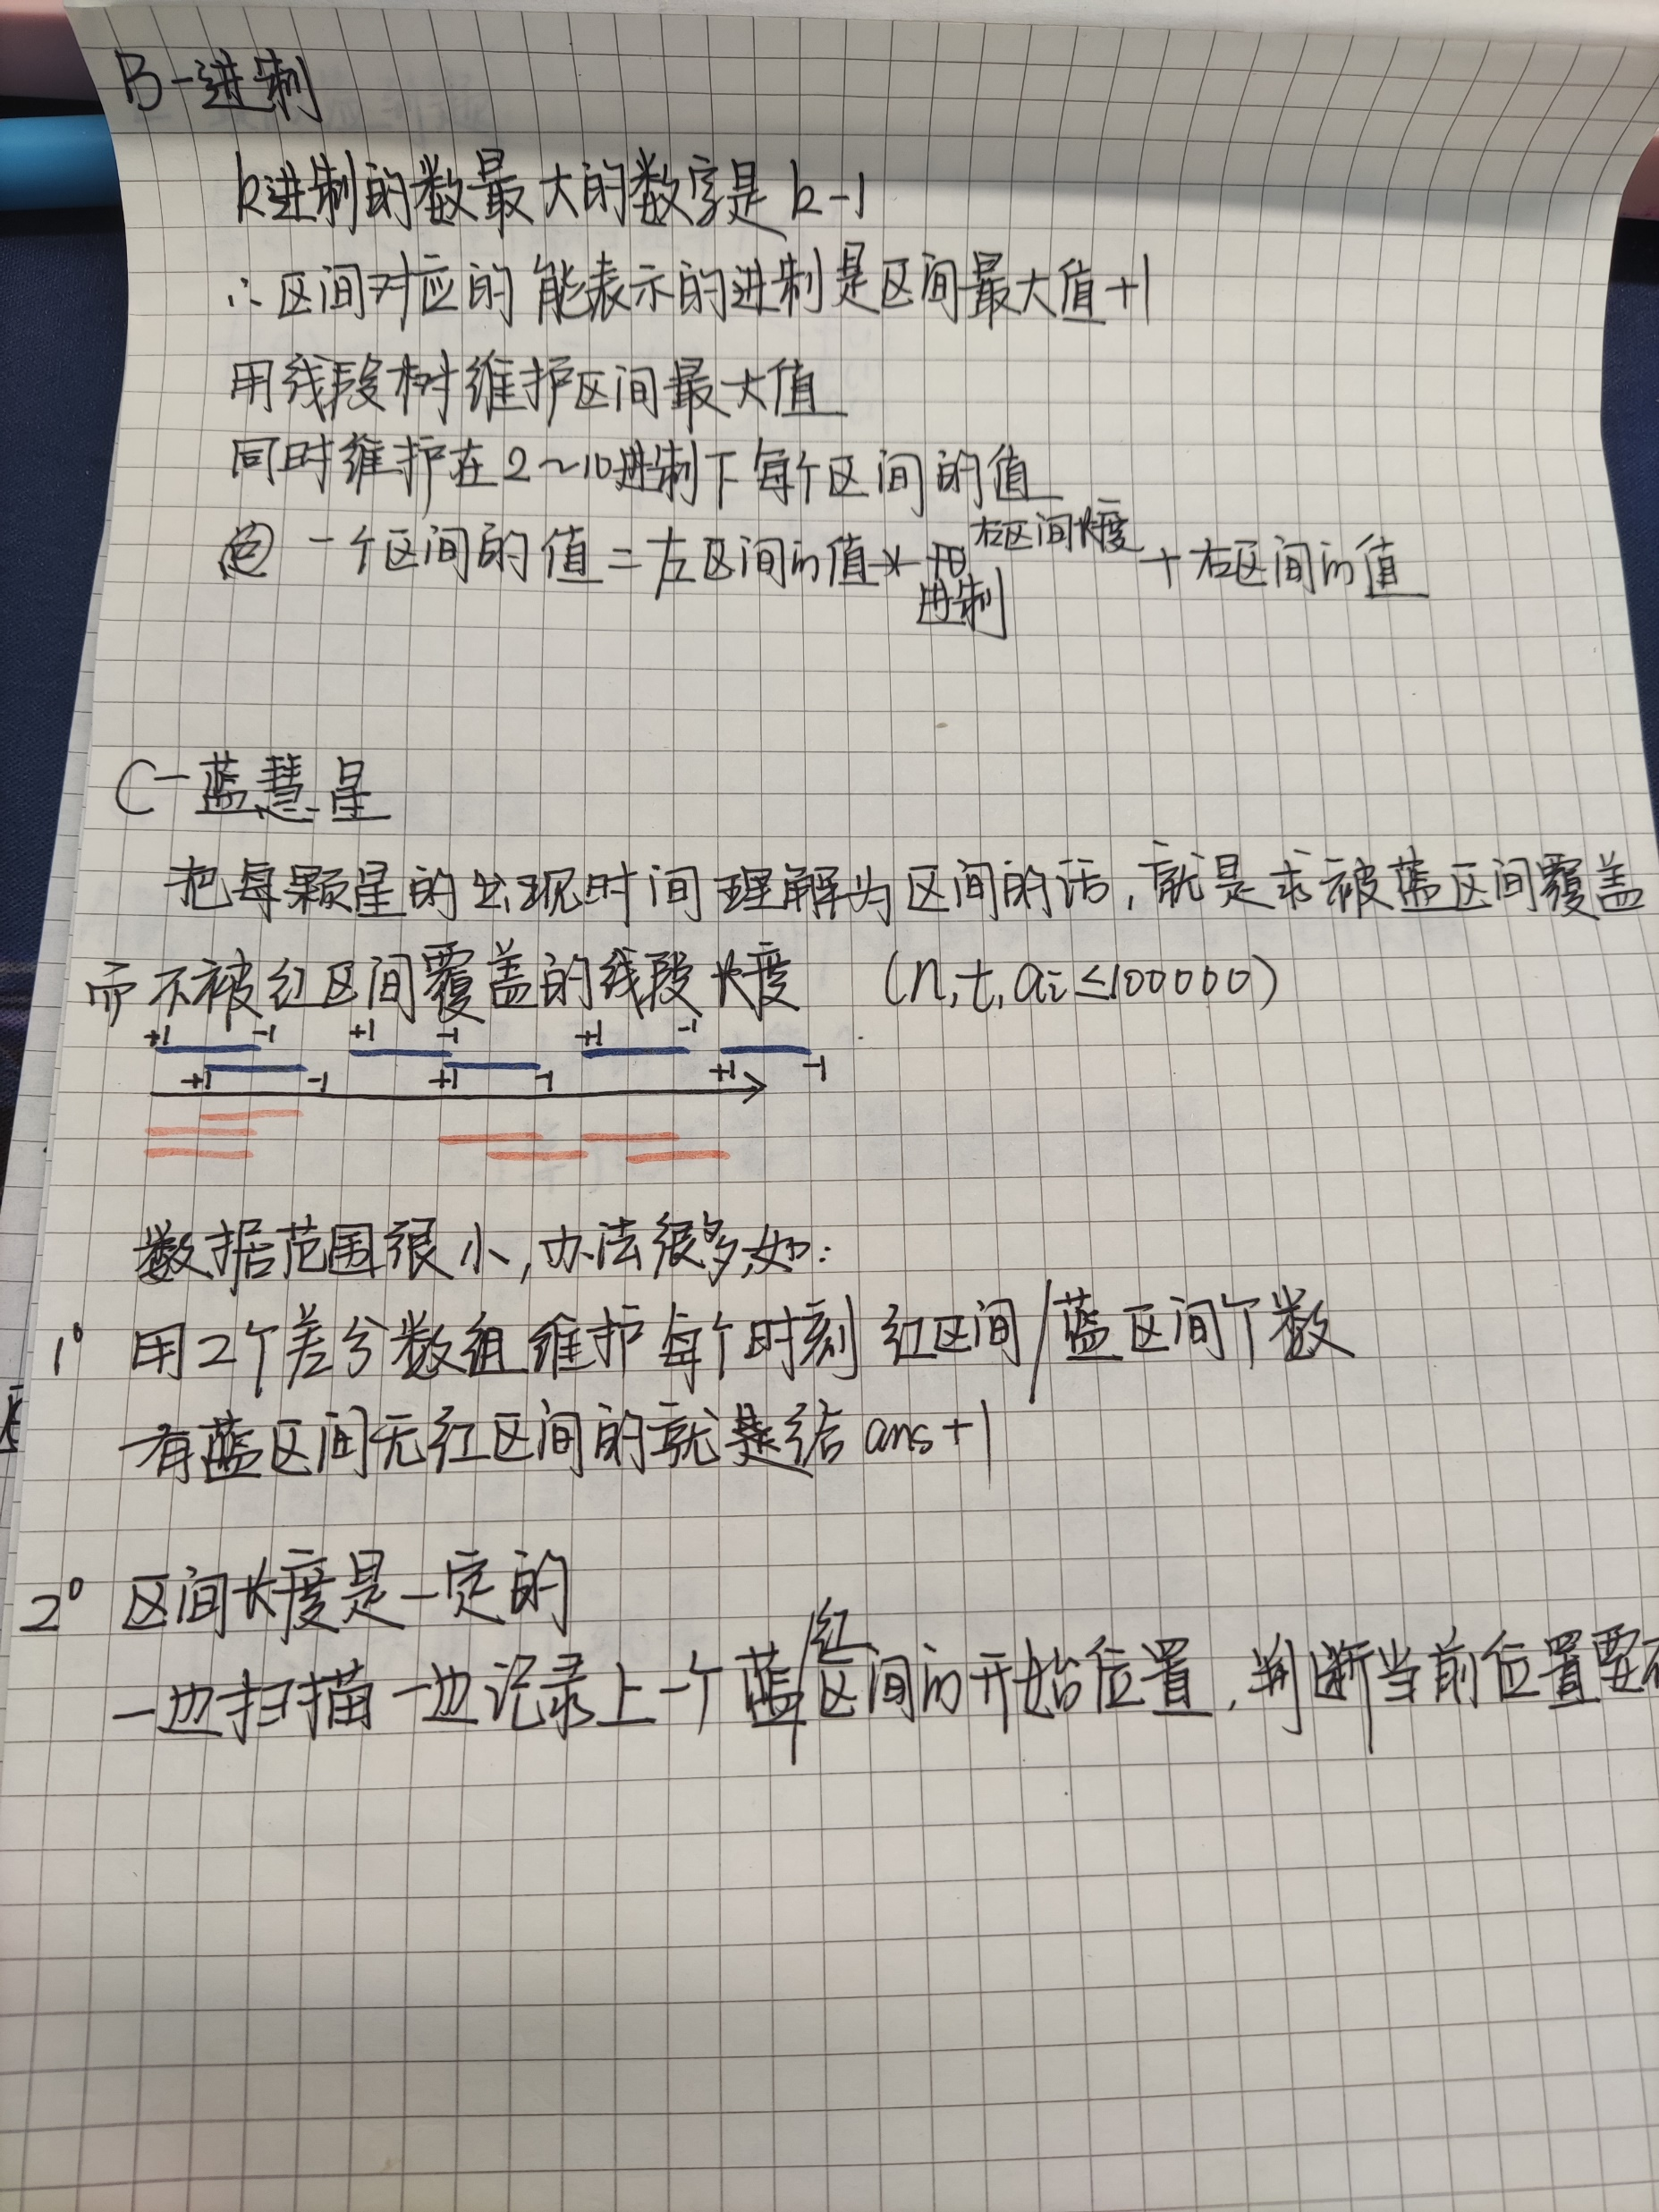 B-进制
k进制的数最大的数字是 k-1
∴区间对应的能表示的进制是区间最大值+1
用线段树维护区间最大值
同时维护在2~10进制下每个区间的值
一个区间的值=左区间的值*进制 右区间长度 +右区间的值
C-蓝慧星
把每颗星的出现时间理解为区间的话,就是求被蓝区间覆盖
而不被红区间覆盖的线段长度 (n,t,ai≤100000)
+1 -1 +1 -1 +1 -1
+1 -1 +1 -1 +1 -1
数据范围很小,办法很多,如:
1° 用2个差分数组维护每个时刻红区间/蓝区间个数
有蓝区间无红区间的就是给ans+1
2° 区间长度是一定的
一边扫描一边记录上一个蓝/红区间的开始位置,判断当前位置要